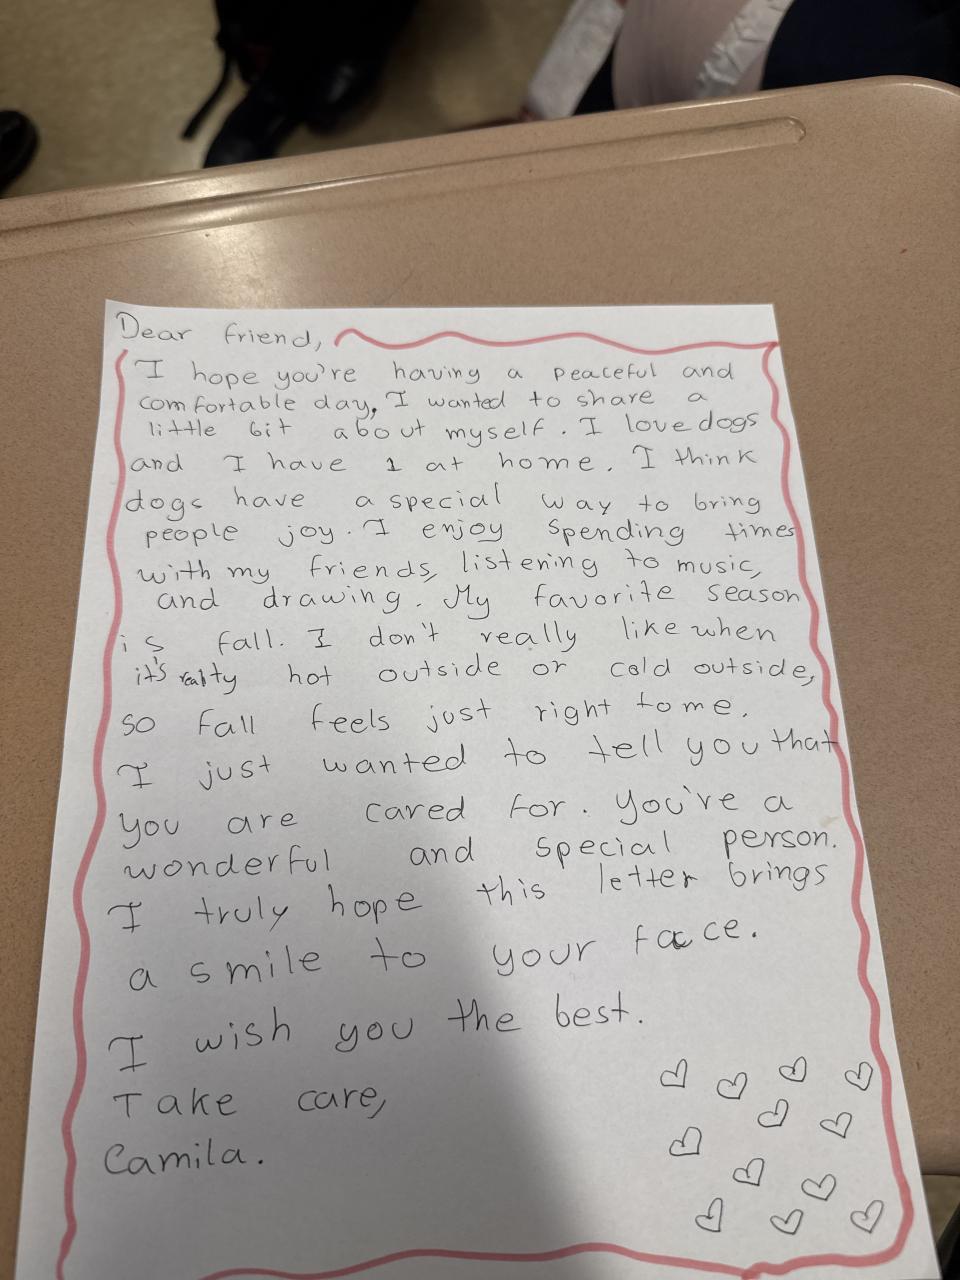 Dear friend,
I hope you're having a peaceful and
comfortable day, I wanted to share a
little bit about myself. I love dogs
and I have 1 at home. I think
dogs have a special way to bring
people joy. I enjoy spending times
with my friends, listening to music,
and drawing. My favorite season
is fall. I don't really like when
it's really hot outside or cold outside,
so fall feels just right to me.
I just wanted to tell you that
you are cared for. You're a
wonderful and special person.
I truly hope this letter brings
a smile to your face.
I wish you the best.
Take care,
Camila.